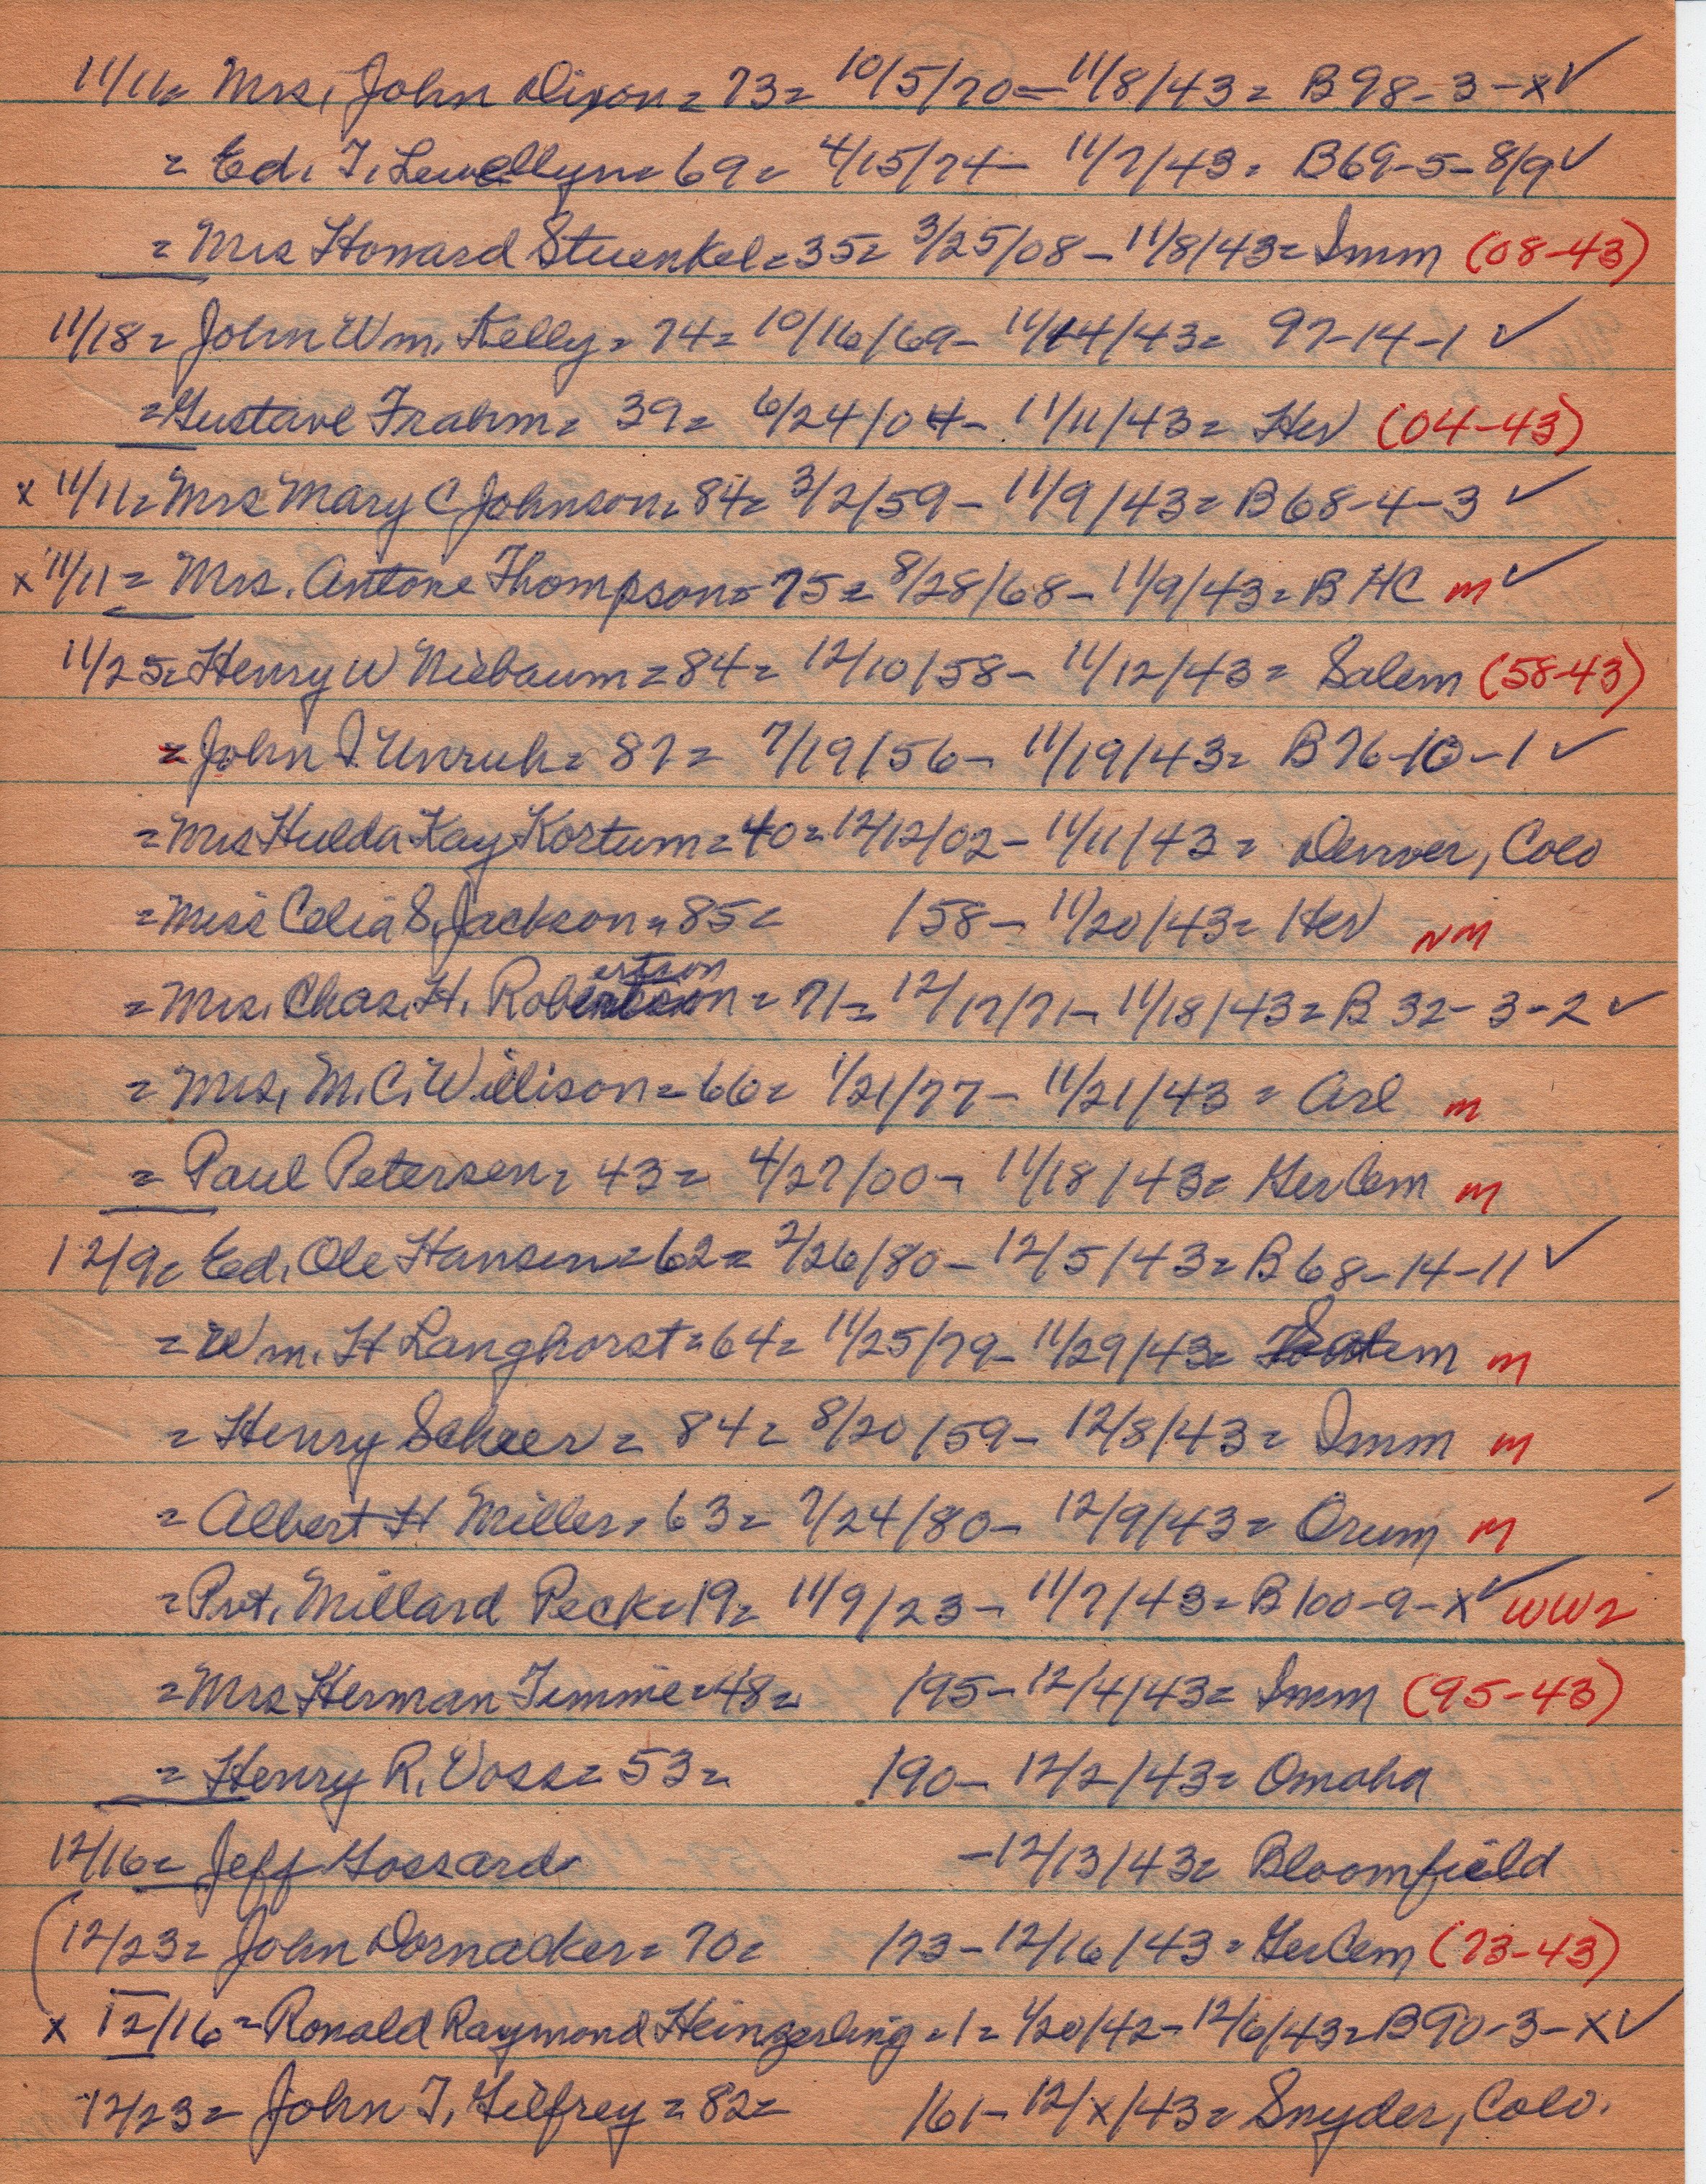 11/11= Mrs. John Dixon = 73= 10/5/70 = 11/8/43 = B98-3-x✓
= Ed. T. Lewellyn= 69= 4/15/74- 11/7/43= B69-5-8/9✓
= Mrs Howard Stuenkel=35= 3/25/08-11/8/43= Imm (08-43)
11/18= John Wm. Kelly= 74= 10/16/69- 11/14/43= 97-14-1 ✓
=Gustave Frahm= 39= 6/24/04- 11/11/43= Her (04-43)
x 11/11= Mrs Mary C Johnson= 84= 3/2/59- 11/9/43= B68-4-3 ✓
x 11/11= Mrs. Antone Thompson= 75= 8/28/68- 11/9/43= B HC m ✓
11/25= Henry W Niebaum=84= 12/10/58- 11/12/43= Salem (58-43)
= John I Unruh= 87= 7/19/56- 11/19/43= B76-10-1 ✓
=Mrs Hulda Kay Kortum=40=12/12/02- 11/11/43= Denver, Colo
=Miss Celia S. Jackson=85= /58- 11/20/43= Her NM
= Mrs. Chas. H. Robertson = 71= 12/17/71- 11/18/43= B 32-3-2 ✓
= Mrs. M.C. Willison=66= 1/21/77- 11/21/43= Arl m
= Paul Petersen= 43= 4/27/00- 11/18/43= Ger Cem m
12/9= Ed. Ole Hansen=62= 2/26/80- 12/5/43= B68-14-11 ✓
= Wm. H Langhorst=64= 11/25/79- 11/29/43= Salem m
= Henry Scheer= 84= 8/20/59- 12/8/43= Imm m
= Albert H Miller= 63= 7/24/80- 12/9/43= Orum m
=Pvt. Millard Peck=19= 11/9/23- 11/7/43= B100-9-x✓ WW2
=Mrs Herman Timme=48= /95- 12/4/43= Imm (95-43)
= Henry R. Voss= 53= /90- 12/2/43= Omaha
12/16= Jeff Gossard -12/13/43= Bloomfield
12/23= John Dornacker= 70= /73-12/16/43= Ger Cem (73-43)
x 12/16=Ronald Raymond Heingerling=1= 1/20/42-12/6/43=B90-3-X✓
12/23= John T. Gilfrey=82= /61- 12/x/43= Snyder, Colo.